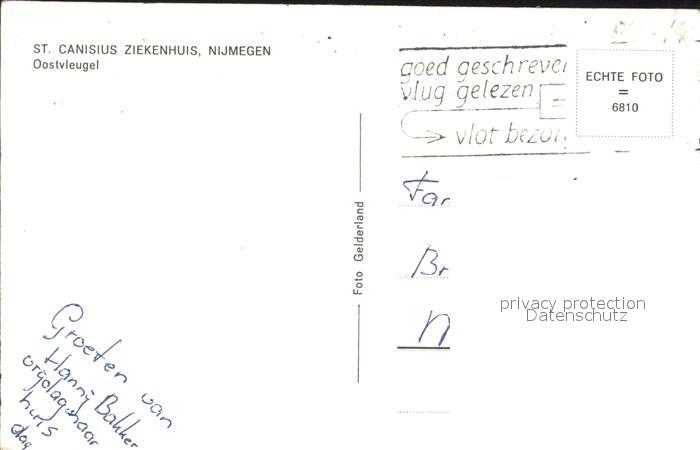 ST. CANISIUS ZIEKENHUIS, NIJMEGEN
Oostvleugel
goed geschreve
vlug gelezen
vlot bezor
ECHTE FOTO
=
6810
Foto Gelderland
Far
Br
N
privacy protection
Datenschutz
Groeten van
Hanny Bakker
huis
dag